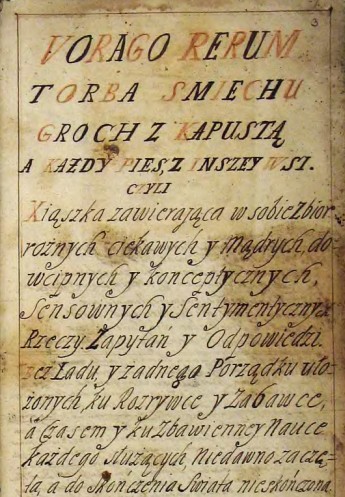 3
VORAGO RERUM
TORBA SMIECHU
GROCH Z KAPUSTĄ
A KAŻDY PIES, Z INSZEY WSI.
CZYLI
Xiąszka zawieraiąca w sobie Zbior
rożnych ciekawych y Mądrych, do-
wcipnych y konceptycznych,
Sensownych y Sentymentycznych
Rzeczy. Zapytań y Odpowiedzi.
bez Ladu, y żadnego Porządku uło-
żonych, ku Rozrywce y Zabawce,
a Czasem y ku Zbawienney Nauce
każdego służących, Niedawno zaczę-
ta, a do Skończenia Swiata nieskończona